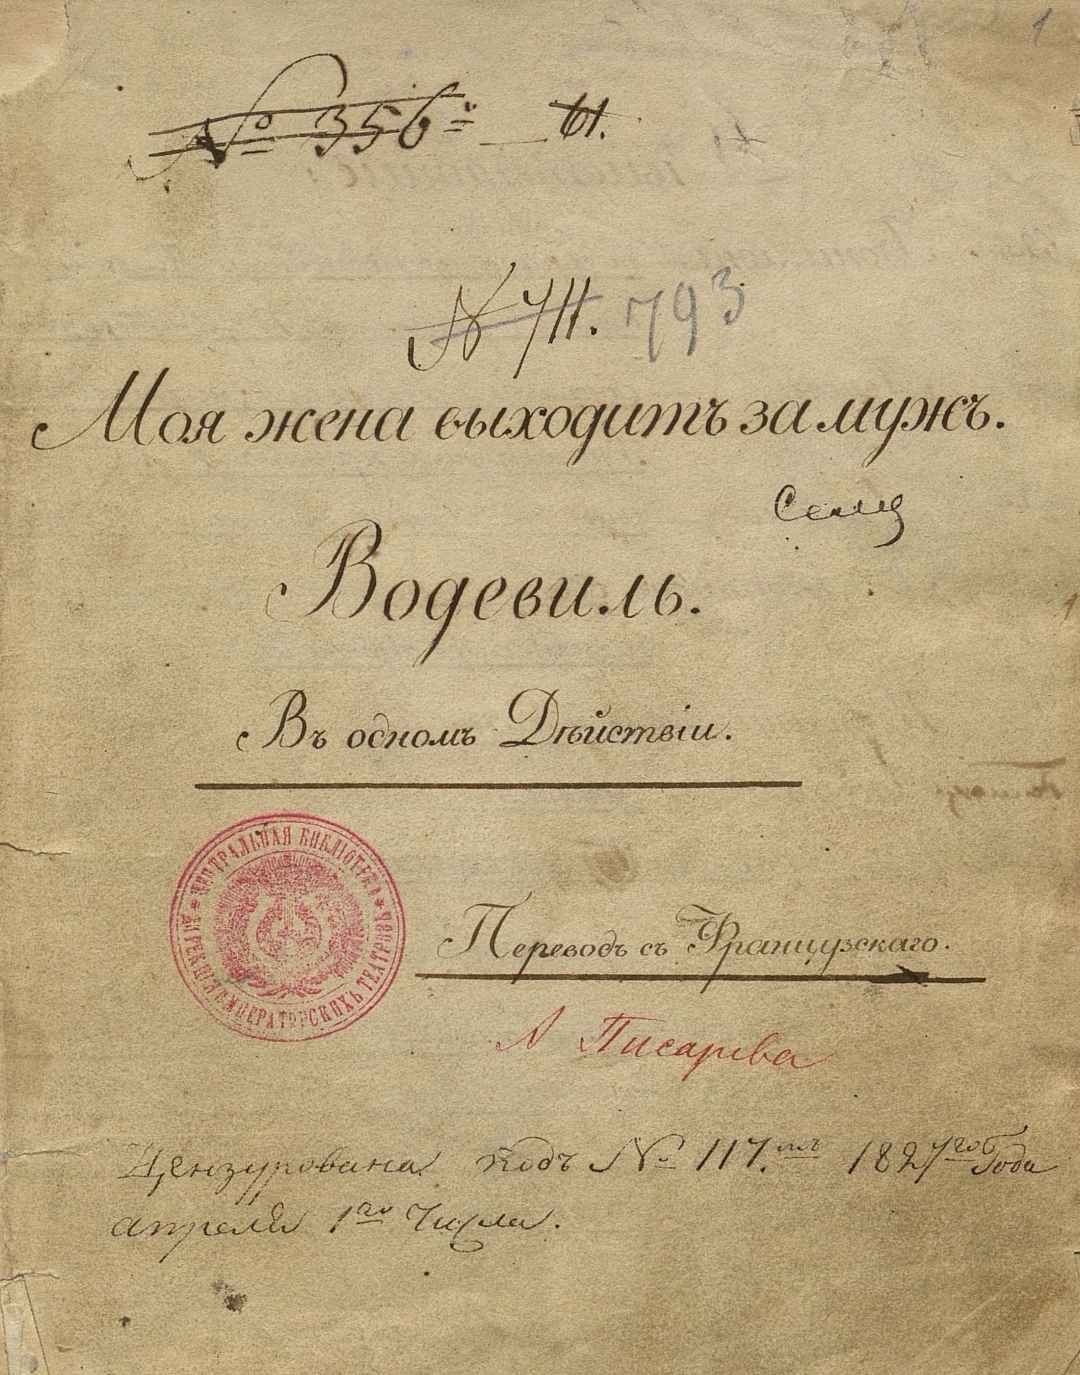 1
№ 356. 61.
№ 711. 793
Моя жена выходитъ замужъ.
Водевиль.
Въ одномъ Дѣйствіи.
ЦЕНТРАЛЬНАЯ БИБЛІОТЕКА * ДИРЕКЦІИ ИМПЕРАТОРСКИХЪ ТЕАТРОВЪ *
Переводъ съ Французскаго.
А Писарева
Цензурована подъ № 117.мъ 1827го Года
апреля 1го Числа.